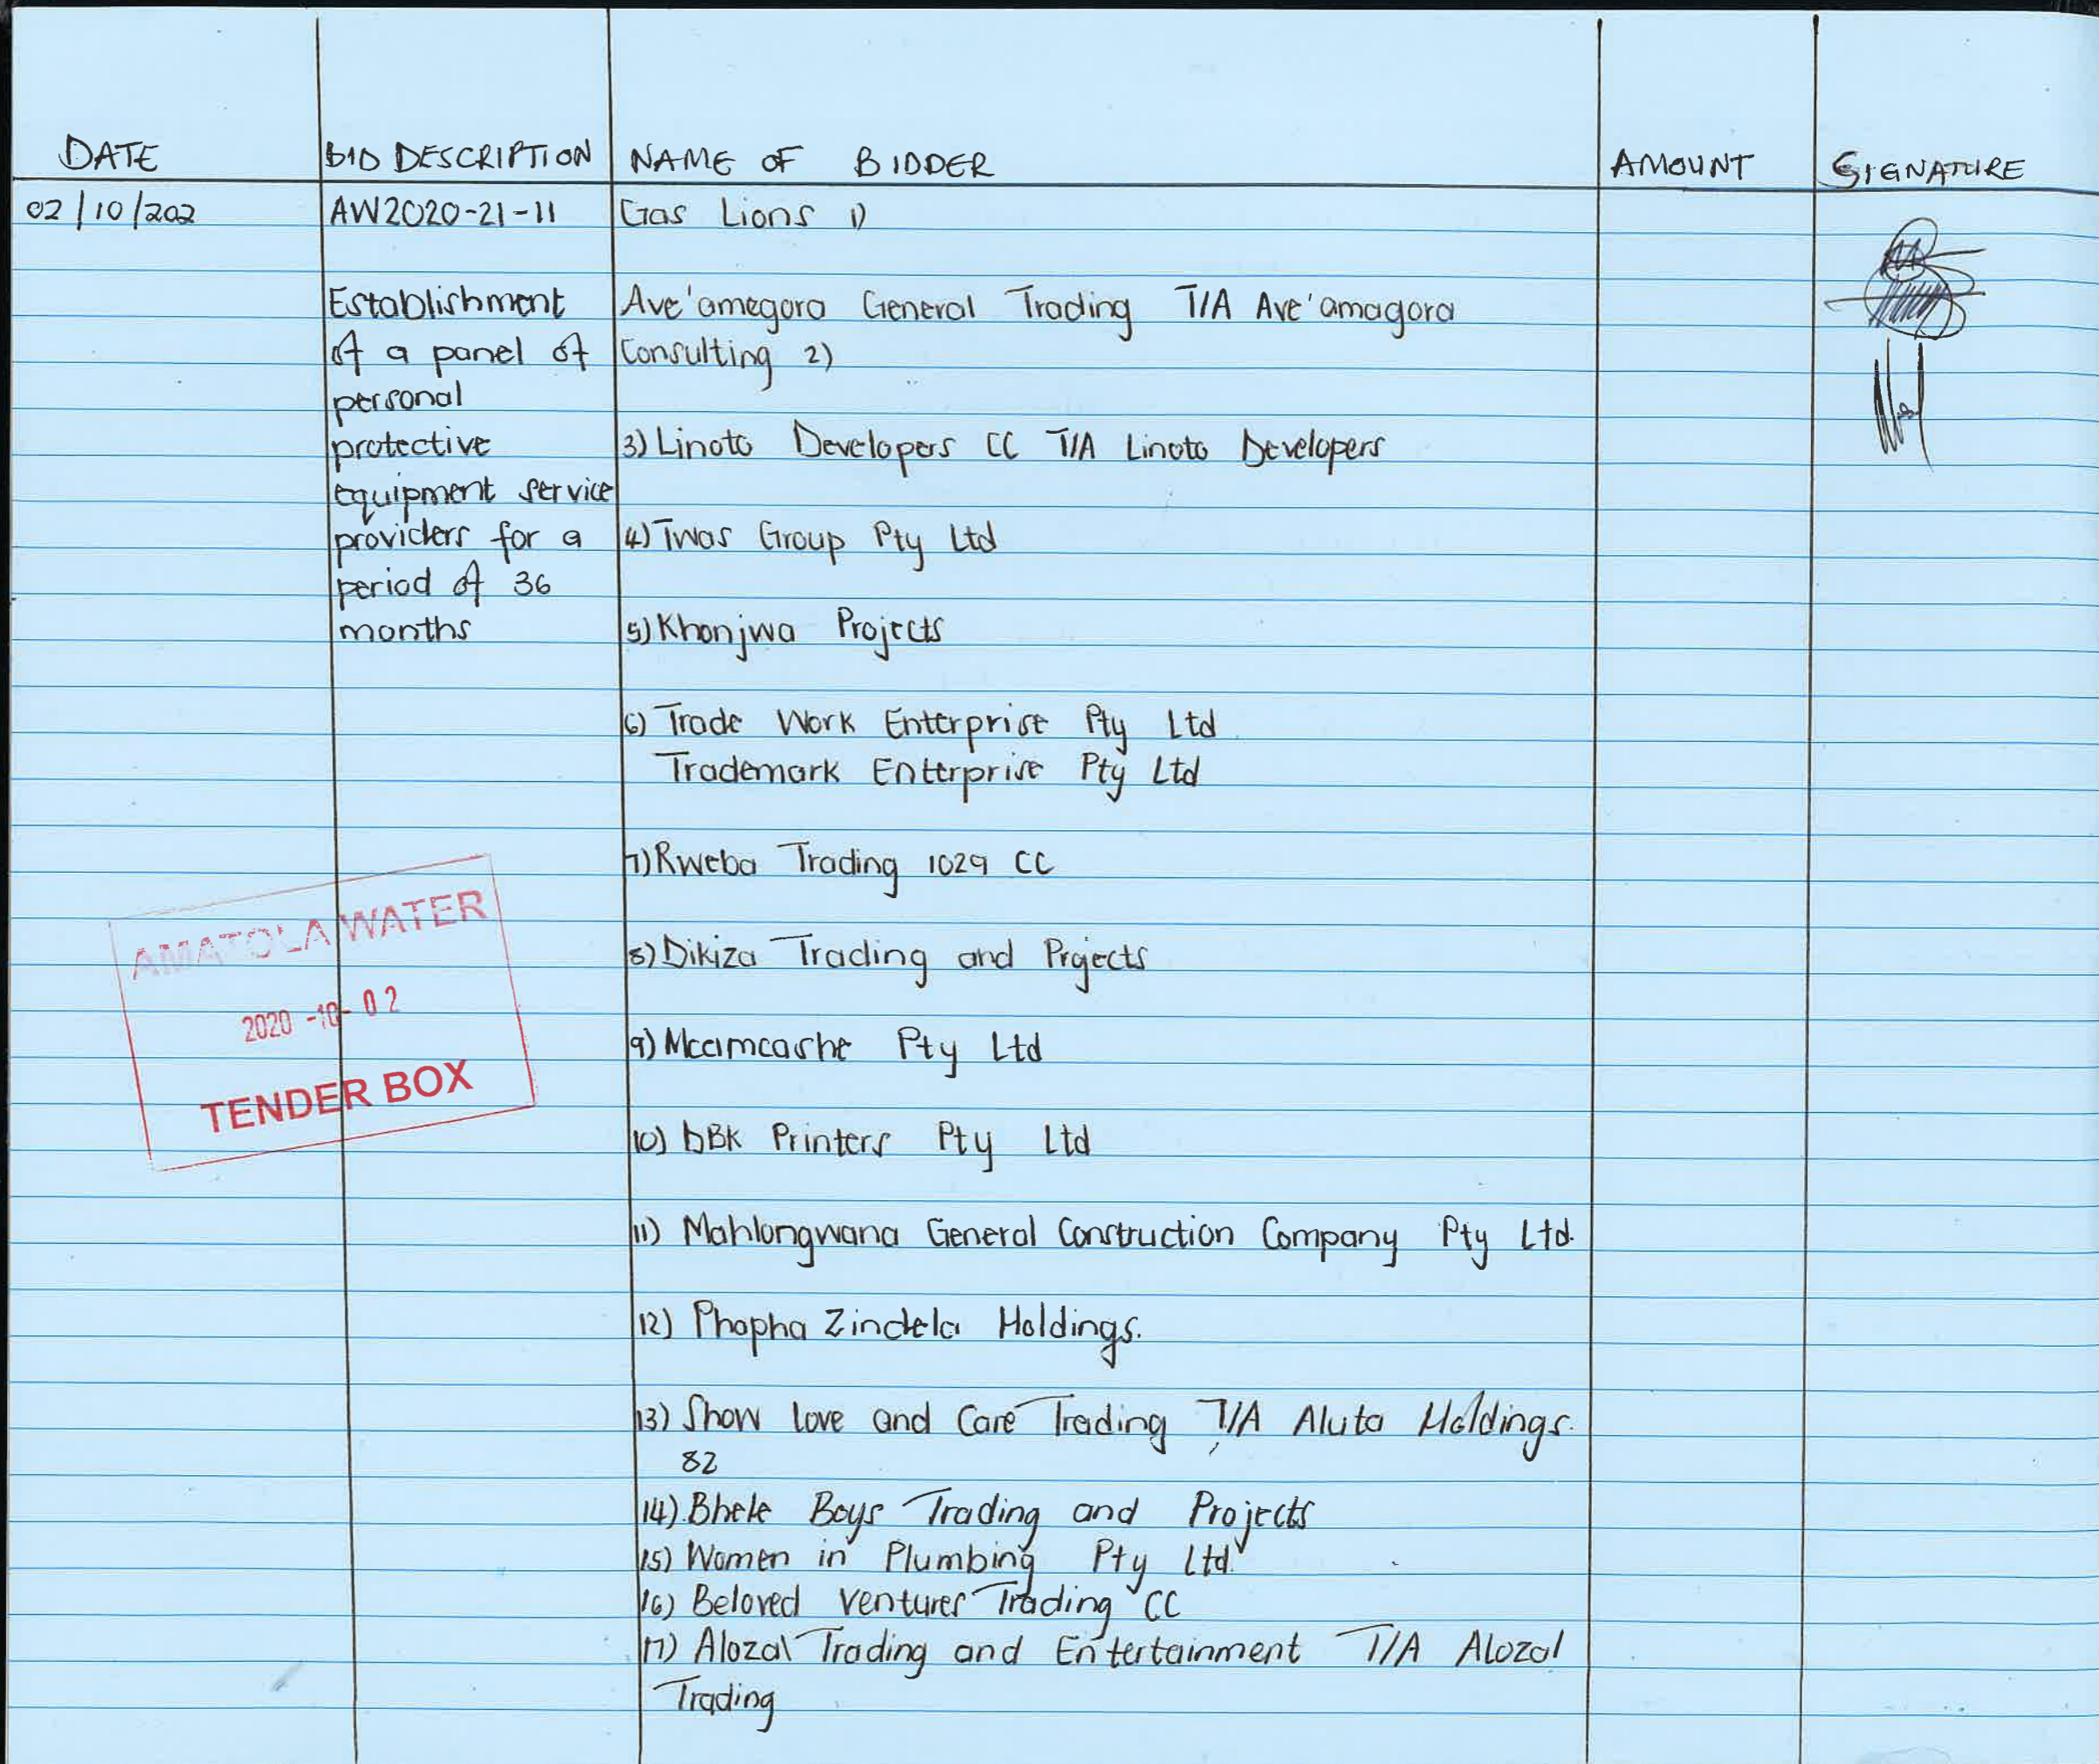 DATE
BID DESCRIPTION
NAME OF BIDDER
AMOUNT
SIGNATURE
02/10/202
AW2020-21-11
Establishment
of a panel of
personal
protective
equipment service
providers for a
period of 36
months
Gas Lions 1)
Ave'amegora General Trading T/A Ave'amagora
Consulting 2)
3) Linoto Developers CC T/A Linoto Developers
4) Twas Group Pty Ltd
5) Khonjwa Projects
6) Trade Work Enterprise Pty Ltd
Trademark Enterprise Pty Ltd
7) Rweba Trading 1029 CC
8) Dikiza Trading and Projects
9) Mcamcashe Pty Ltd
10) DBK Printers Pty Ltd
11) Mahlongwana General Construction Company Pty Ltd.
12) Phopha Zindela Holdings.
13) Show love and Care Trading T/A Aluta Holdings.
82
14) Bhele Boys Trading and Projects
15) Women in Plumbing Pty Ltd.
16) Beloved Ventures Trading CC
17) Alozal Trading and Entertainment T/A Alozal
Trading
AMATOLA WATER
2020 -10- 02
TENDER BOX